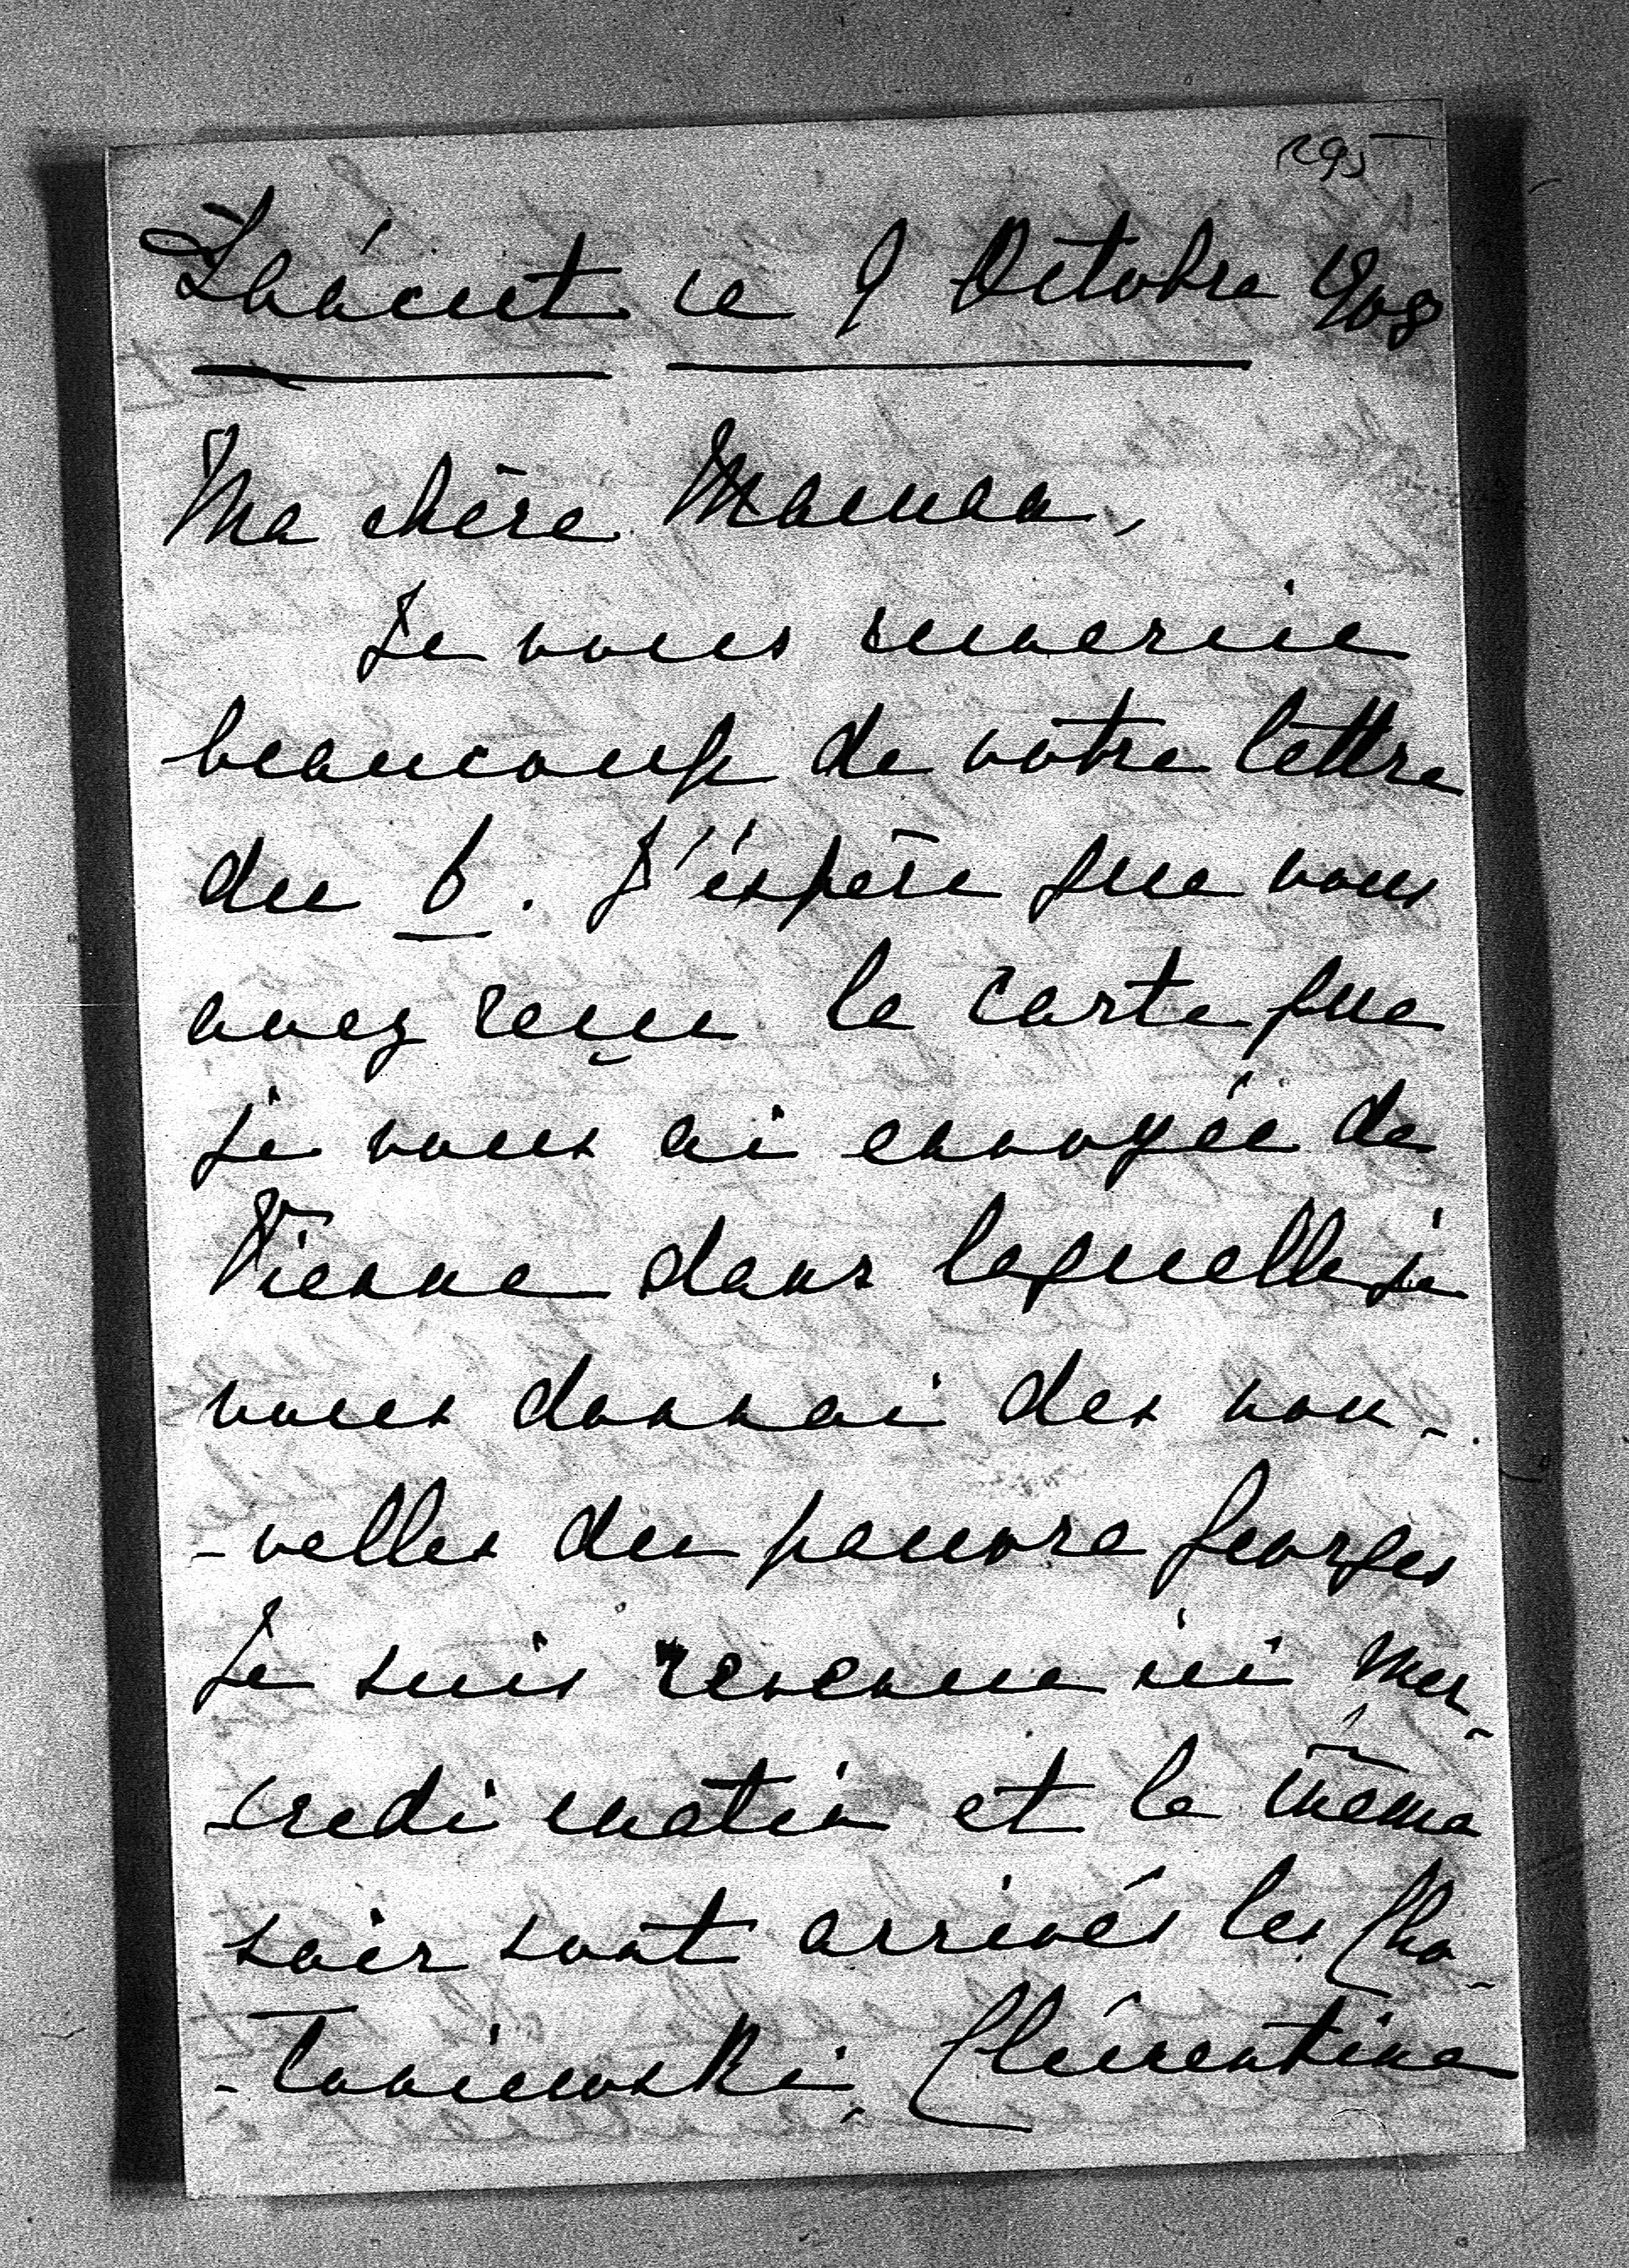 295
Łańcut ce 9 Octobre 1908
Ma chère Maman,
Je vous remercie
beaucoup de votre lettre
du 6. J'éspère que vous
avez reçue la carte que
je vous ai envoyée de
Vienne dans laquelle je
vous donnai des nou-
-velles du pauvre Georges
Je suis revenue ici mer-
-credi matin et le même
soir sont arrivés les Cho-
-loniewski, Clémentine